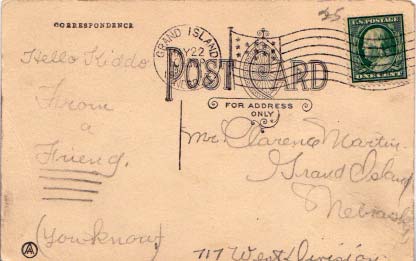 CORRESPONDENCE
25
GRAND ISLAND
Y22
U.S. POSTAGE
ONE CENT
POST CARD
FOR ADDRESS
ONLY
Hello Kiddo
From
a
Friend.
(You know)
Mr. Clarence Martin
Grand Island
Nebraska
717 West Division